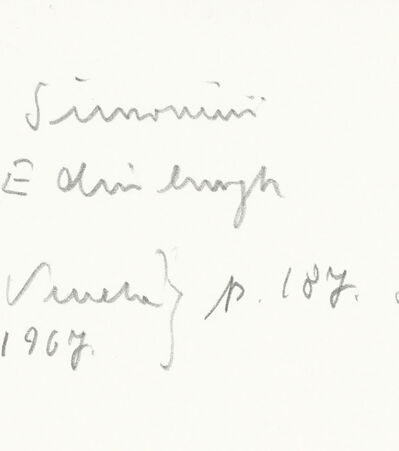 Simonini
Edinburgh
Veneta } p. 187.
1967.